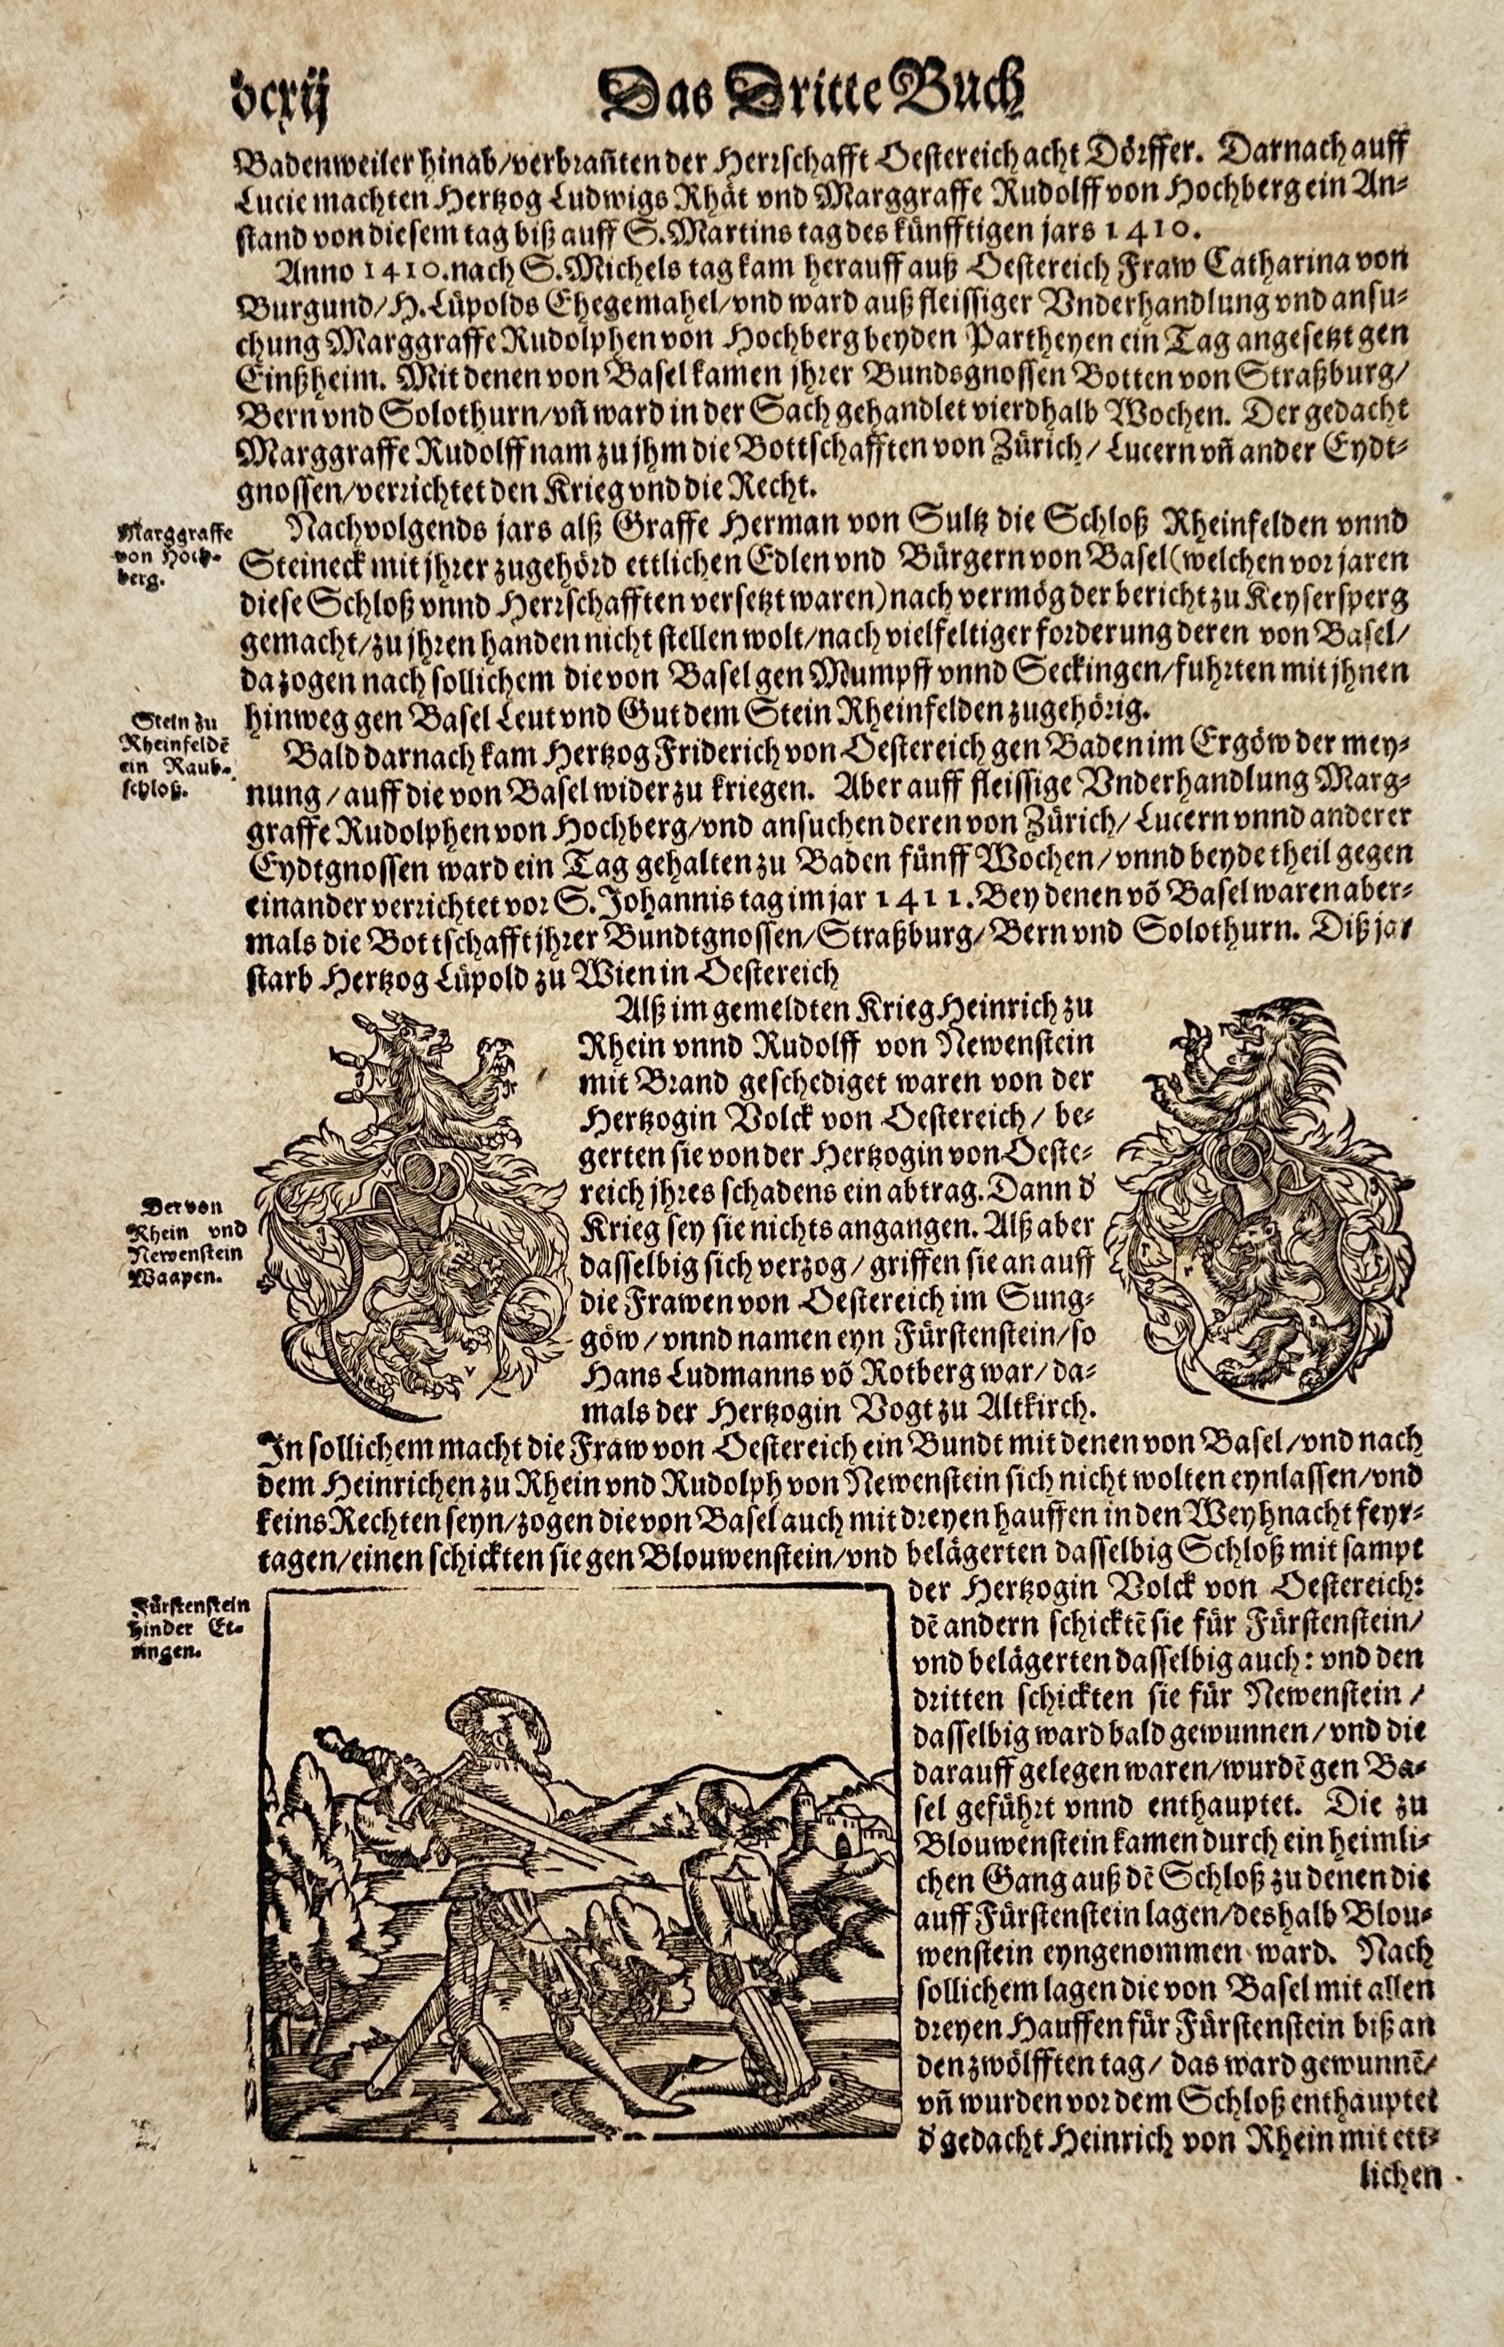 dcxij
Das Dritte Buch
Badenweiler hinab/verbrañten der Herrschafft Oestereich acht Dörffer. Darnach auff
Lucie machten Hertzog Ludwigs Rhät vnd Marggraffe Rudolff von Hochberg ein An-
stand von diesem tag biß auff S. Martins tag des künfftigen jars 1410.
Anno 1410. nach S. Michels tag kam herauff auß Oestereich Fraw Catharina von
Burgund/H. Lüpolds Ehegemahel/vnd ward auß fleissiger Vnderhandlung vnd ansu-
chung Marggraffe Rudolphen von Hochberg beyden Partheyen ein Tag angesetzt gen
Einßheim. Mit denen von Basel kamen jhrer Bundsgnossen Botten von Straßburg/
Bern vnd Solothurn/vñ ward in der Sach gehandlet vierdhalb Wochen. Der gedacht
Marggraffe Rudolff nam zu jhm die Bottschafften von Zürich/ Lucern vñ ander Eydt-
gnossen/verrichtet den Krieg vnd die Recht.
Marggraffe
von Hoch-
berg.
Nachvolgends jars alß Graffe Herman von Sultz die Schloß Rheinfelden vnnd
Steineck mit jhrer zugehörd ettlichen Edlen vnd Bürgern von Basel (welchen vor jaren
diese Schloß vnnd Herrschafften versetzt waren) nach vermög der bericht zu Keysersperg
gemacht/zu jhren handen nicht stellen wolt/nach vielfeltiger forderung deren von Basel/
da zogen nach sollichem die von Basel gen Mumpff vnnd Seckingen/fuhrten mit jhnen
hinweg gen Basel Leut vnd Gut dem Stein Rheinfelden zugehörig.
Stein zu
Rheinfeldē
ein Raub-
schloß.
Bald darnach kam Hertzog Friderich von Oestereich gen Baden im Ergöw der mey-
nung/auff die von Basel wider zu kriegen. Aber auff fleissige Vnderhandlung Marg-
graffe Rudolphen von Hochberg/vnd ansuchen deren von Zürich/ Lucern vnnd anderer
Eydtgnossen ward ein Tag gehalten zu Baden fünff Wochen/vnnd beyde theil gegen
einander verrichtet vor S. Johannis tag im jar 1411. Bey denen vō Basel waren aber-
mals die Bottschafft jhrer Bundtgnossen/Straßburg/Bern vnd Solothurn. Diß jar
starb Hertzog Lüpold zu Wien in Oestereich
Alß im gemeldten Krieg Heinrich zu
Rhein vnnd Rudolff von Newenstein
mit Brand geschediget waren von der
Hertzogin Volck von Oestereich/ be-
gerten sie von der Hertzogin von Oeste-
reich jhres schadens ein abtrag. Dann d'
Krieg sey sie nichts angangen. Alß aber
dasselbig sich verzog/griffen sie an auff
die Frawen von Oestereich im Sung-
göw/vnnd namen eyn Fürstenstein/so
Hans Ludmanns vō Rotberg war/da-
mals der Hertzogin Vogt zu Altkirch.
Der von
Rhein vnd
Newenstein
Waapen.
In sollichem macht die Fraw von Oestereich ein Bundt mit denen von Basel/vnd nach
dem Heinrichen zu Rhein vnd Rudolph von Newenstein sich nicht wolten eynlassen/vnd
keins Rechten seyn/zogen die von Basel auch mit dreyen hauffen in den Weyhnacht feyr-
tagen/einen schickten sie gen Blouwenstein/vnd belägerten dasselbig Schloß mit sampt
Fürstenstein
hinder Et-
tingen.
der Hertzogin Volck von Oestereich:
dē andern schicktē sie für Fürstenstein/
vnd belägerten dasselbig auch: vnd den
dritten schickten sie für Newenstein/
dasselbig ward bald gewunnen/vnd die
darauff gelegen waren/wurdē gen Ba-
sel geführt vnnd enthauptet. Die zu
Blouwenstein kamen durch ein heimli-
chen Gang auß dē Schloß zu denen die
auff Fürstenstein lagen/deshalb Blou-
wenstein eyngenommen ward. Nach
sollichem lagen die von Basel mit allen
dreyen Hauffen für Fürstenstein biß an
den zwölfften tag/ das ward gewunnē/
vñ wurden vor dem Schloß enthauptet
d' gedacht Heinrich von Rhein mit ett-
lichen